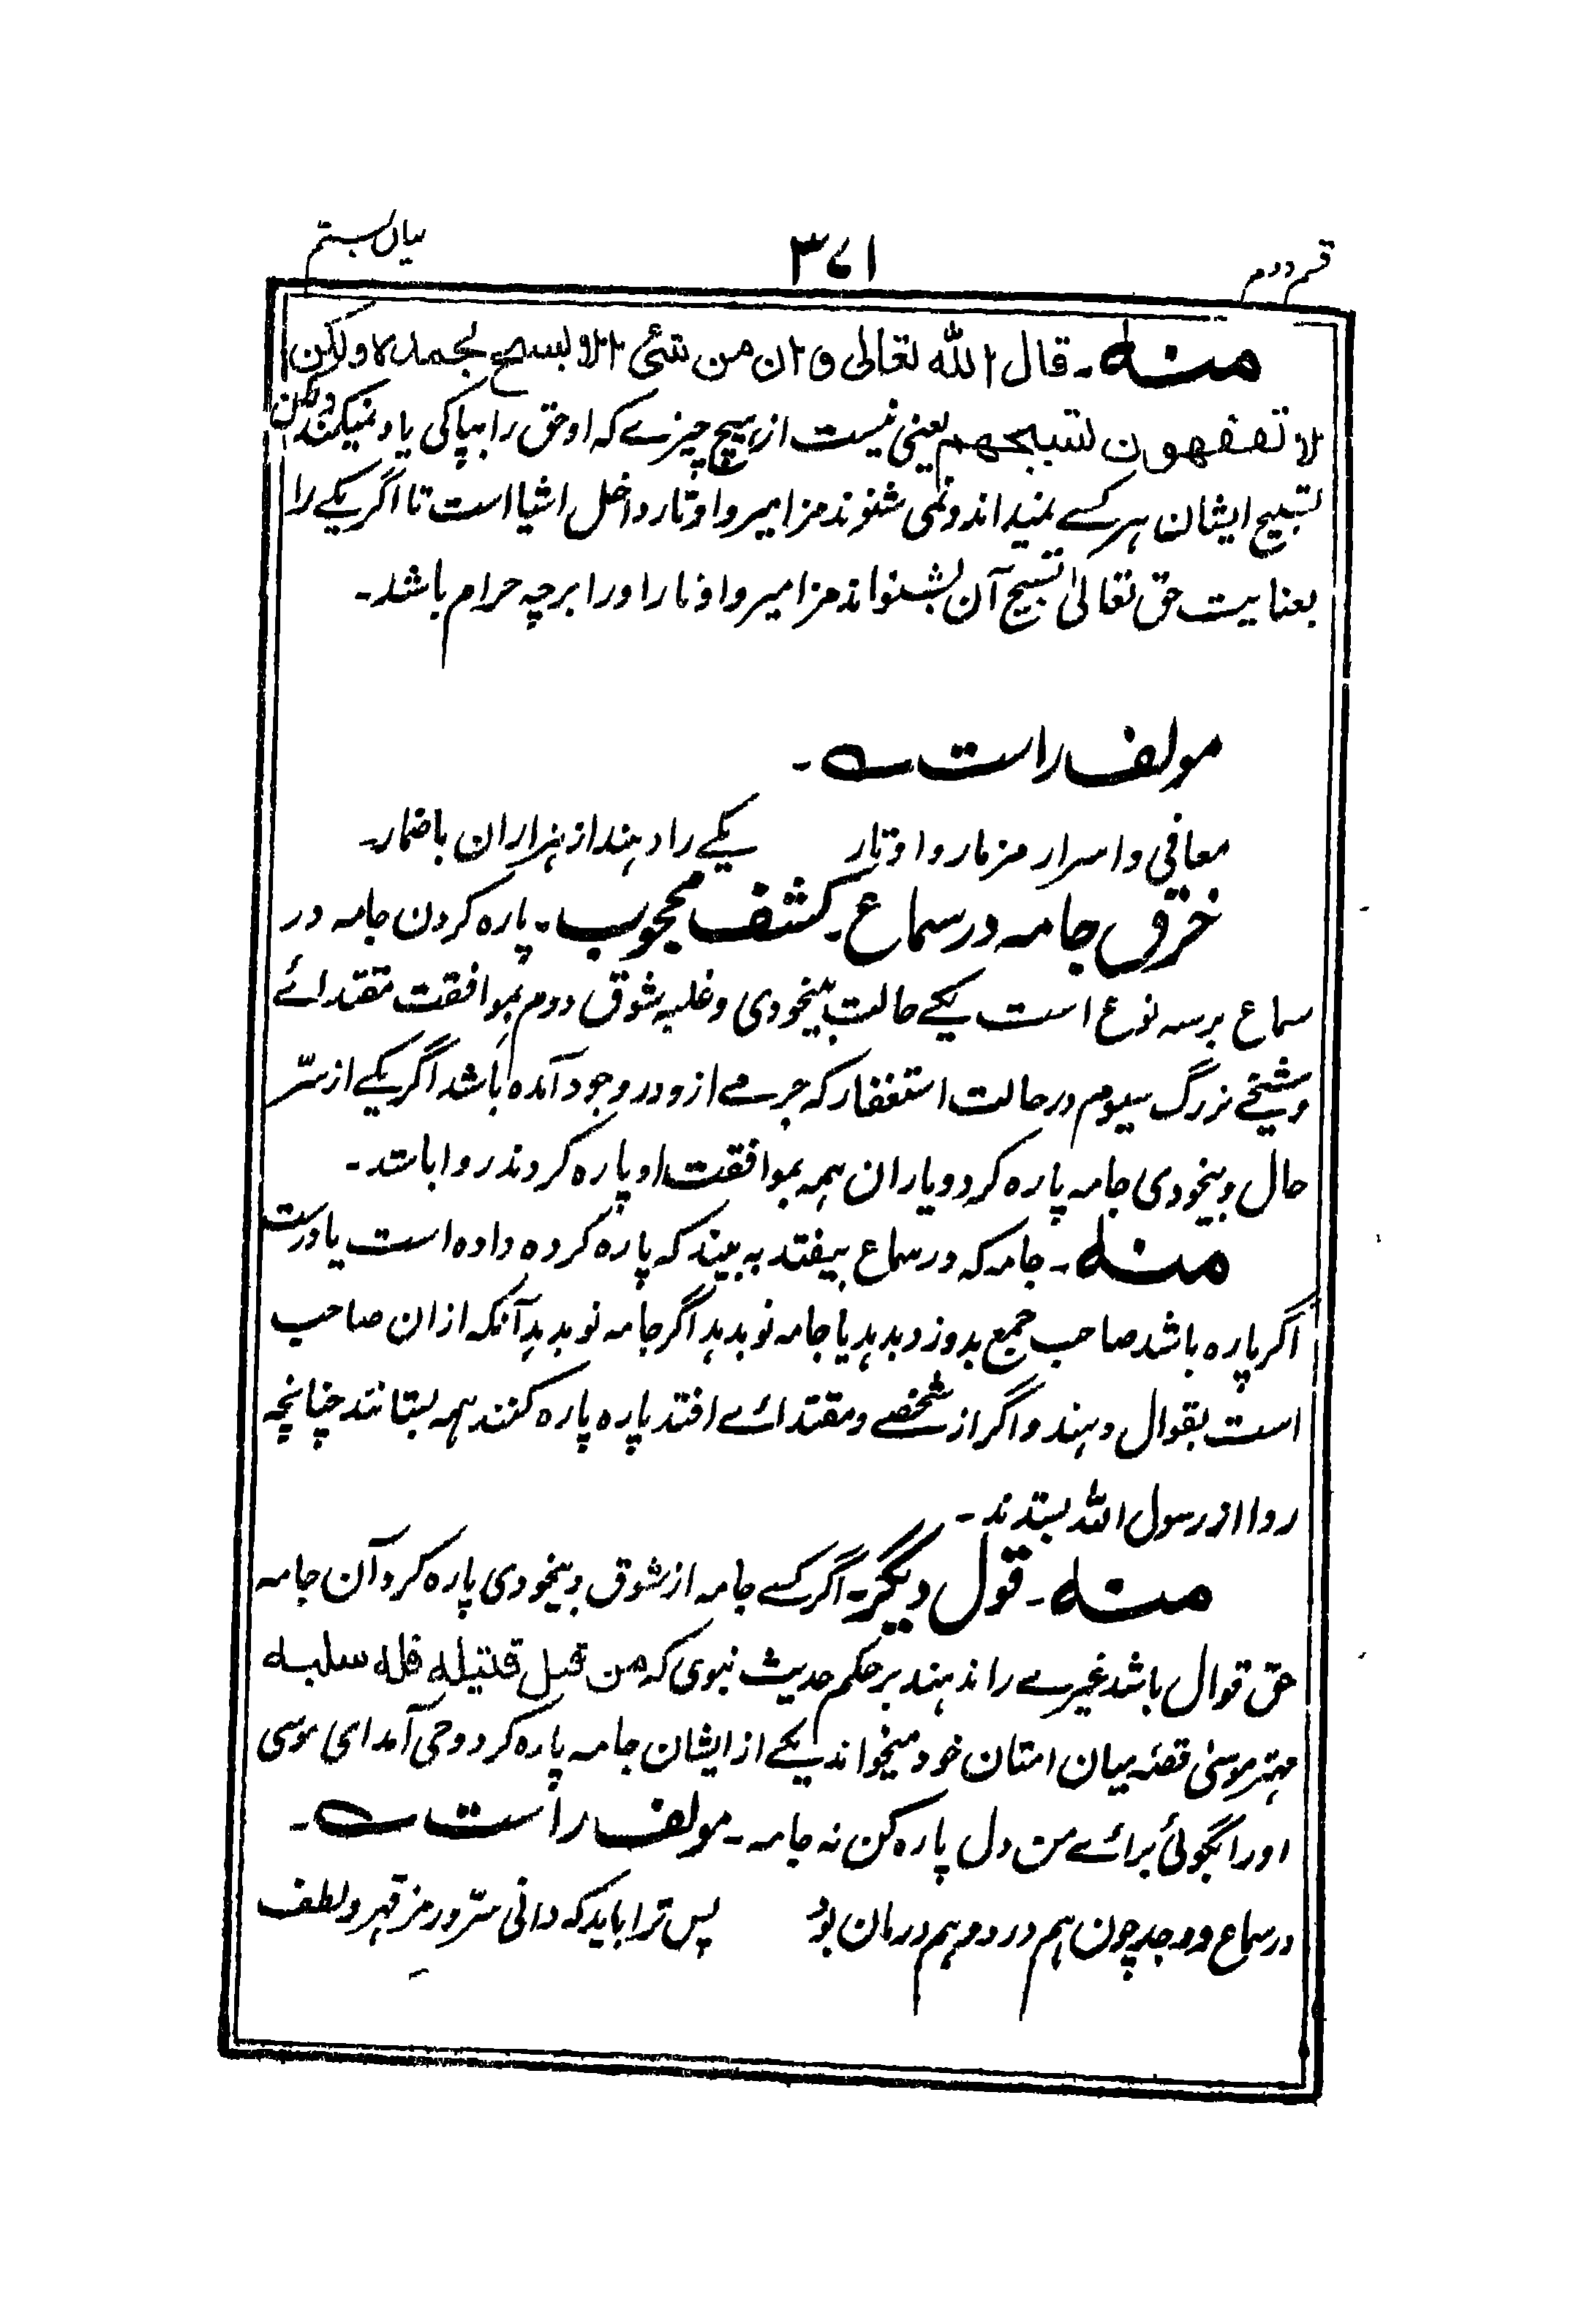 قسم دوم
۳۷۱
بیان بستم
منه ۔ قال الله تعالی و ان من شئی الا یسبح بحمده ولکن
لا تفقهون تسبیحهم یعنی نیست از ہیچ چیزے کہ او حق را بپاکی یاد نمیکند ولکن
تسبیح ایشان ہر کسے نمیداند و نمی شنوند مزامیر و اوتار داخل اشیا است تا اگر یکے را
بعنایت حق تعالیٰ تسبیح آن بشنواند مزامیر و اوتار او را برچہ حرام باشد ۔
مولف راست ؎ ۔
معانی و اسرار مزمار و اوتار یکے را دہند از ہزاران باضمار ۔
خرق جامہ در سماع ۔ کشف محجوب ۔ پارہ کردن جامہ در
سماع بر سہ نوع است یکے حالت بیخودی و غلبہ شوق دوم بموافقت مقتدائے
و شیخے بزرگ سیوم در حالت استغفار کہ جرمے ازو در وجود آمدہ باشد اگر یکے از سرّ
حال و بیخودی جامہ پارہ کرد و یاران ہمہ بموافقت او پارہ کردند روا باشد ۔
منه ۔ جامہ کہ در سماع بیفتد بہ بیند کہ پارہ کردہ دادہ است یا درست
اگر پارہ باشد صاحب جمع بدوزد بدہد یا جامہ نو بدہد اگر جامہ نو بدہد آنکہ ازان صاحب
است بقوال دہند و اگر از شخصے و مقتدائے افتد پارہ پارہ کنند ہمہ بستانند چنانچہ
ردا از رسول اللہ بستدند ۔
منه ۔ قول دیگر ۔ اگر کسے جامہ از شوق و بیخودی پارہ کرد آن جامہ
حق قوال باشد غیرے را ندہند بر حکم حدیث نبوی کہ من قتل قتیله فله سلبه
مہتر موسیٰ قصہ میان امتان خود میخواند یکے از ایشان جامہ پارہ کرد وحی آمد ای موسی
اورا بگوئی برائے من دل پارہ کن نہ جامہ ۔ مولف راست ؎ ۔
در سماع و وجد چون ہم درد و ہم درمان بود پس ترا باید کہ دانی سرّ و رمز قہر و لطف